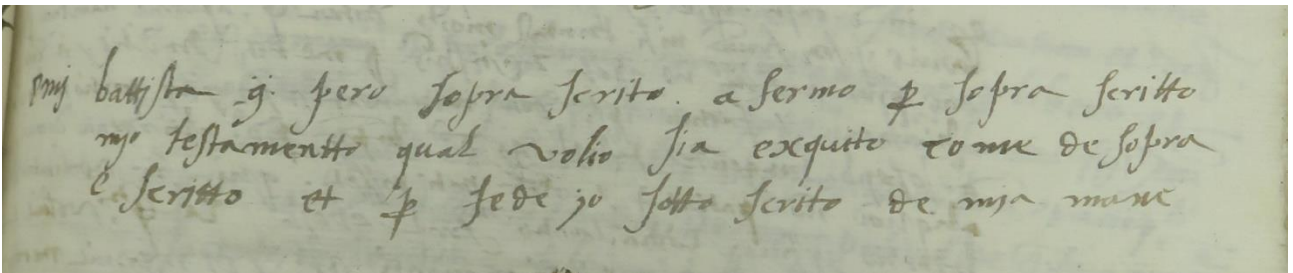 battista q. piero sopra scrito. a fermo p sopra scritto
mjo testamentto qual volio sia exquito come de sopra
e scritto et p fede jo sotto scrito de mja mane